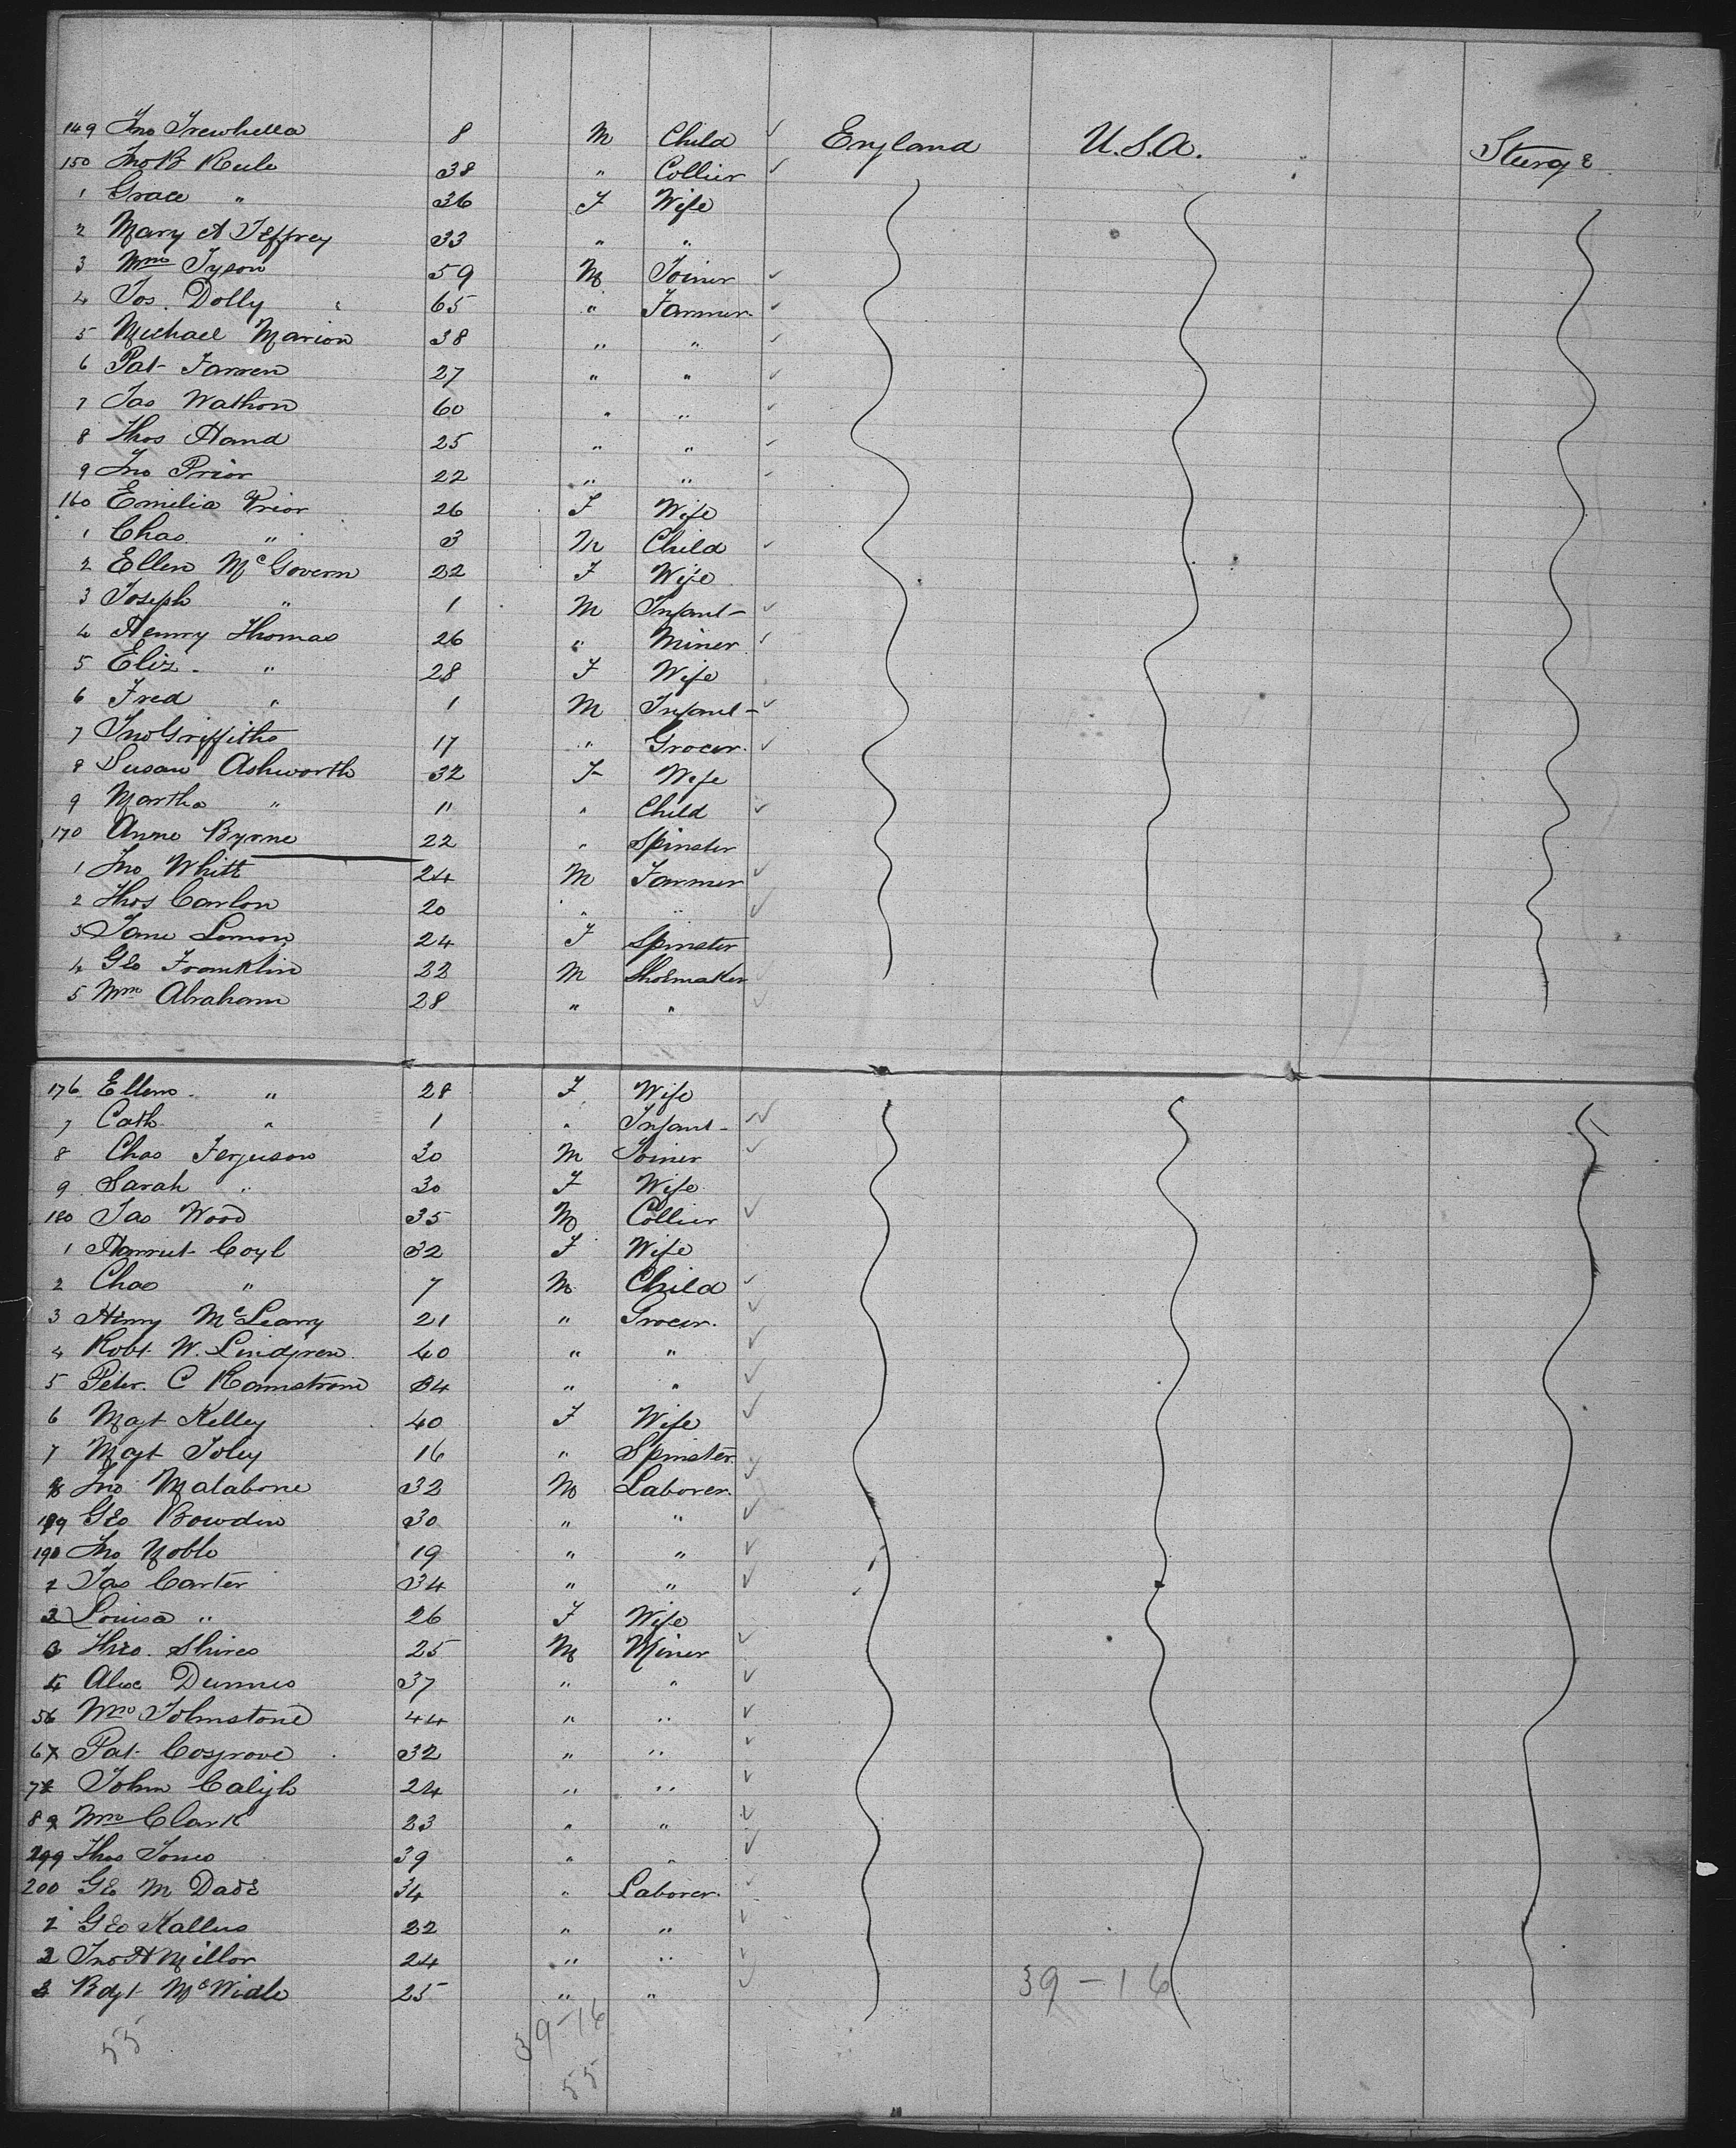 149 Jno Trewhella 8 M Child ✓ England U.S.A. Steerge
150 Jno B Rule 38 " Collier ✓
1 Grace " 36 F Wife
2 Mary A Jeffrey 33 " "
3 Wm Tyson 59 M Joiner ✓
4 Jos. Dolly 65 " Farmer ✓
5 Michael Marion 38 " " ✓
6 Pat Farren 27 " " ✓
7 Jas Wathon 60 " " ✓
8 Thos Hand 25 " " ✓
9 Jno Prior 22 " " ✓
160 Emilia Prior 26 F Wife
1 Chas. " 3 M Child ✓
2 Ellen McGovern 22 F Wife
3 Joseph " 1 M Infant ✓
4 Henry Thomas 26 " Miner ✓
5 Eliz. " 28 F Wife
6 Fred " 1 M Infant ✓
7 Jno Griffiths 17 " Grocer ✓
8 Susan Ashworth 32 F Wife
9 Martha " 11 " Child ✓
170 Anne Byrne 22 " Spinster
1 Jno Whitt 24 M Farmer ✓
2 Thos Carlon 20 " " ✓
3 Jane Lomon 24 F Spinster
4 Geo Franklin 22 M Shoemaker ✓
5 Wm Abraham 28 " " ✓
176 Ellen " 28 F Wife
7 Cath. " 1 " Infant ✓
8 Chas Ferguson 30 M Joiner ✓
9 Sarah " 30 F Wife
180 Jas Wood 35 M Collier ✓
1 Harriet Coyl 32 F Wife
2 Chas " 7 M Child ✓
3 Henry McLeary 21 " Grocer. ✓
4 Robt. W. Lindgren 40 " " ✓
5 Peter. C Ramstrom 34 " " ✓
6 Mgt Kelley 40 F Wife ✓
7 Mgt Foley 16 " Spinster
8 Jno Malabone 32 M Laborer. ✓
189 Geo Bowden 30 " " ✓
190 Jno Noble 19 " " ✓
1 Jas Carter 34 " " ✓
2 Louisa " 26 F Wife
3 Theo. Shires 25 M Miner ✓
4 Alex Dunnes 37 " " ✓
5 Wm Johnstone 44 " " ✓
6 Pat. Cosgrove 32 " " ✓
7 John Caligh 24 " " ✓
8 Wm Clark 23 " " ✓
199 Thos Jones 39 " " ✓
200 Geo M Dade 34 " Laborer. ✓
1 Geo Kallus 22 " " ✓
2 Jno H Millor 24 " " ✓
3 Bdgt McWidle 25 " " ✓
39-16
55 39-16
55